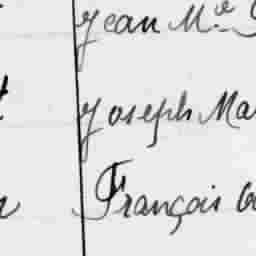 Jean Mie
Joseph Ma
François